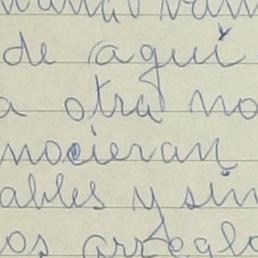 de aquí
a otra no
nocieran
ables y sin
os arreglo